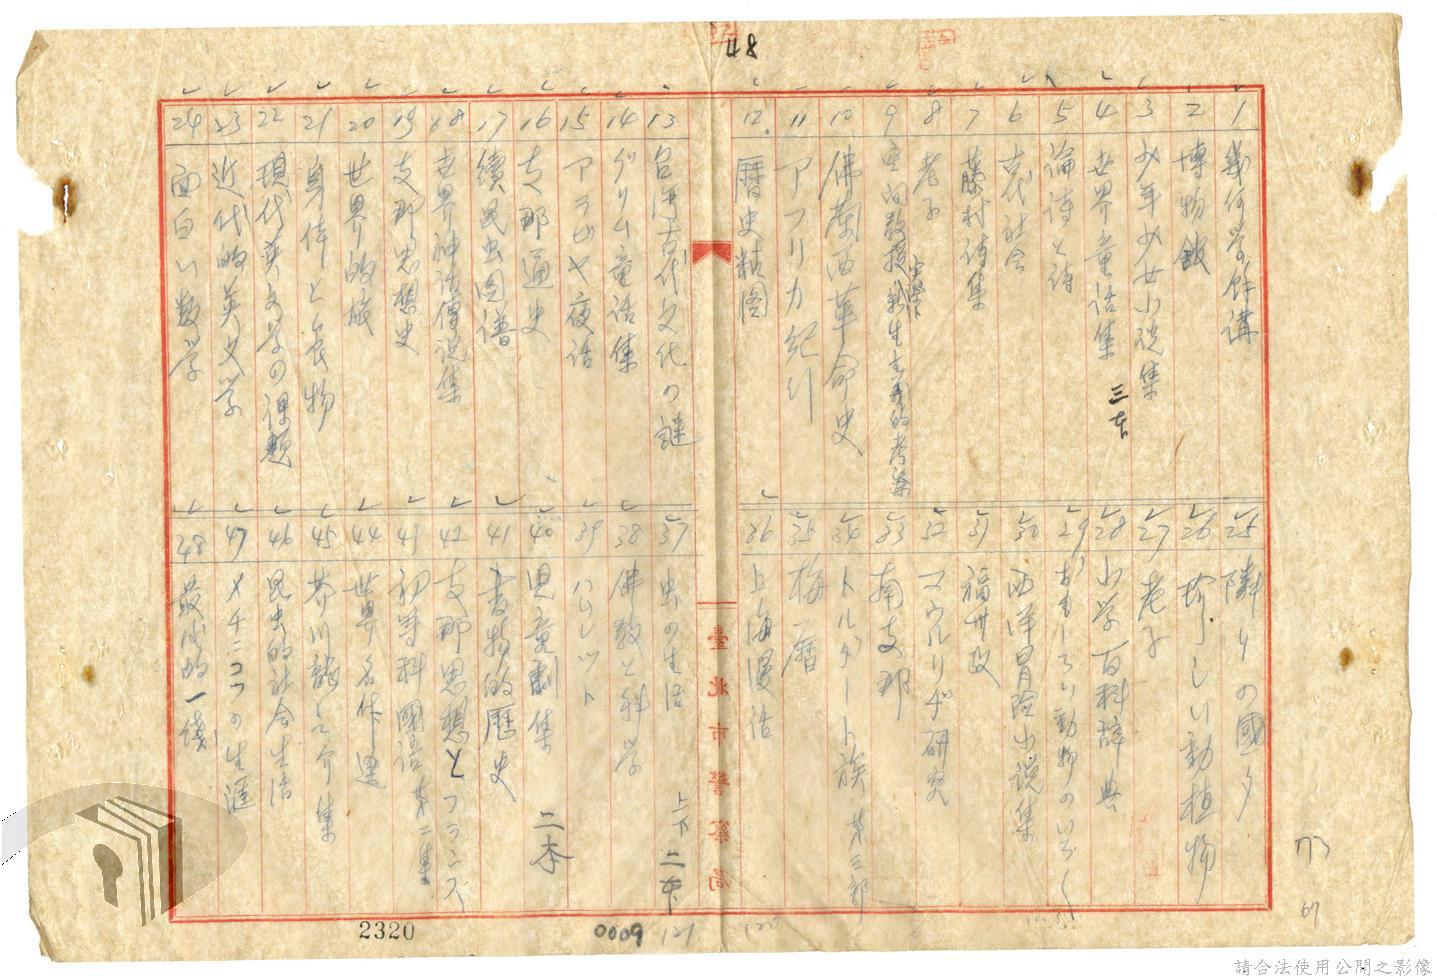 48
1 幾何学餘講
2 博物館
3 少年少女小説集
4 世界童話集 三本
5 論詩と詩
6 古代社会
7 藤村詩集
8 老子
9
10 佛蘭西革命史
11 アフリカ紀行
12 暦史粘図
13 台湾古代文化の謎
14 グリム童話集
15 アラビヤ夜話
16 支那通史
17 續昆虫図譜
18 世界神話傳説集
19 支那思想史
20 世界的旅
21 身体と食物
22 現代英文学の課題
23 近代的英文学
24 面白い数学
25 隣りの國々
26 珍らしい動植物
27 老子
28 小学百科辞典
29 おもしろい動物のいろ〱
30 西洋冒険小説集
31 福廿政
32 マウルリヂ研究
33 南支那
34 トルダート族 第三部
35 梅暦
36 上海漫話
37 虫の生活 上下二本
38 佛教と科学
39 ハムレット
40 児童劇集 二本
41 書物的歴史
42 支那思想とフランス
43 初等科國語 第二集
44 世界名作選
45 芥川龍之介集
46 昆虫的社会生活
47 メチニコフの生涯
48 最後的一錢
臺北市警察局
2320
0009
121
120
73
67
請合法使用公開之影像